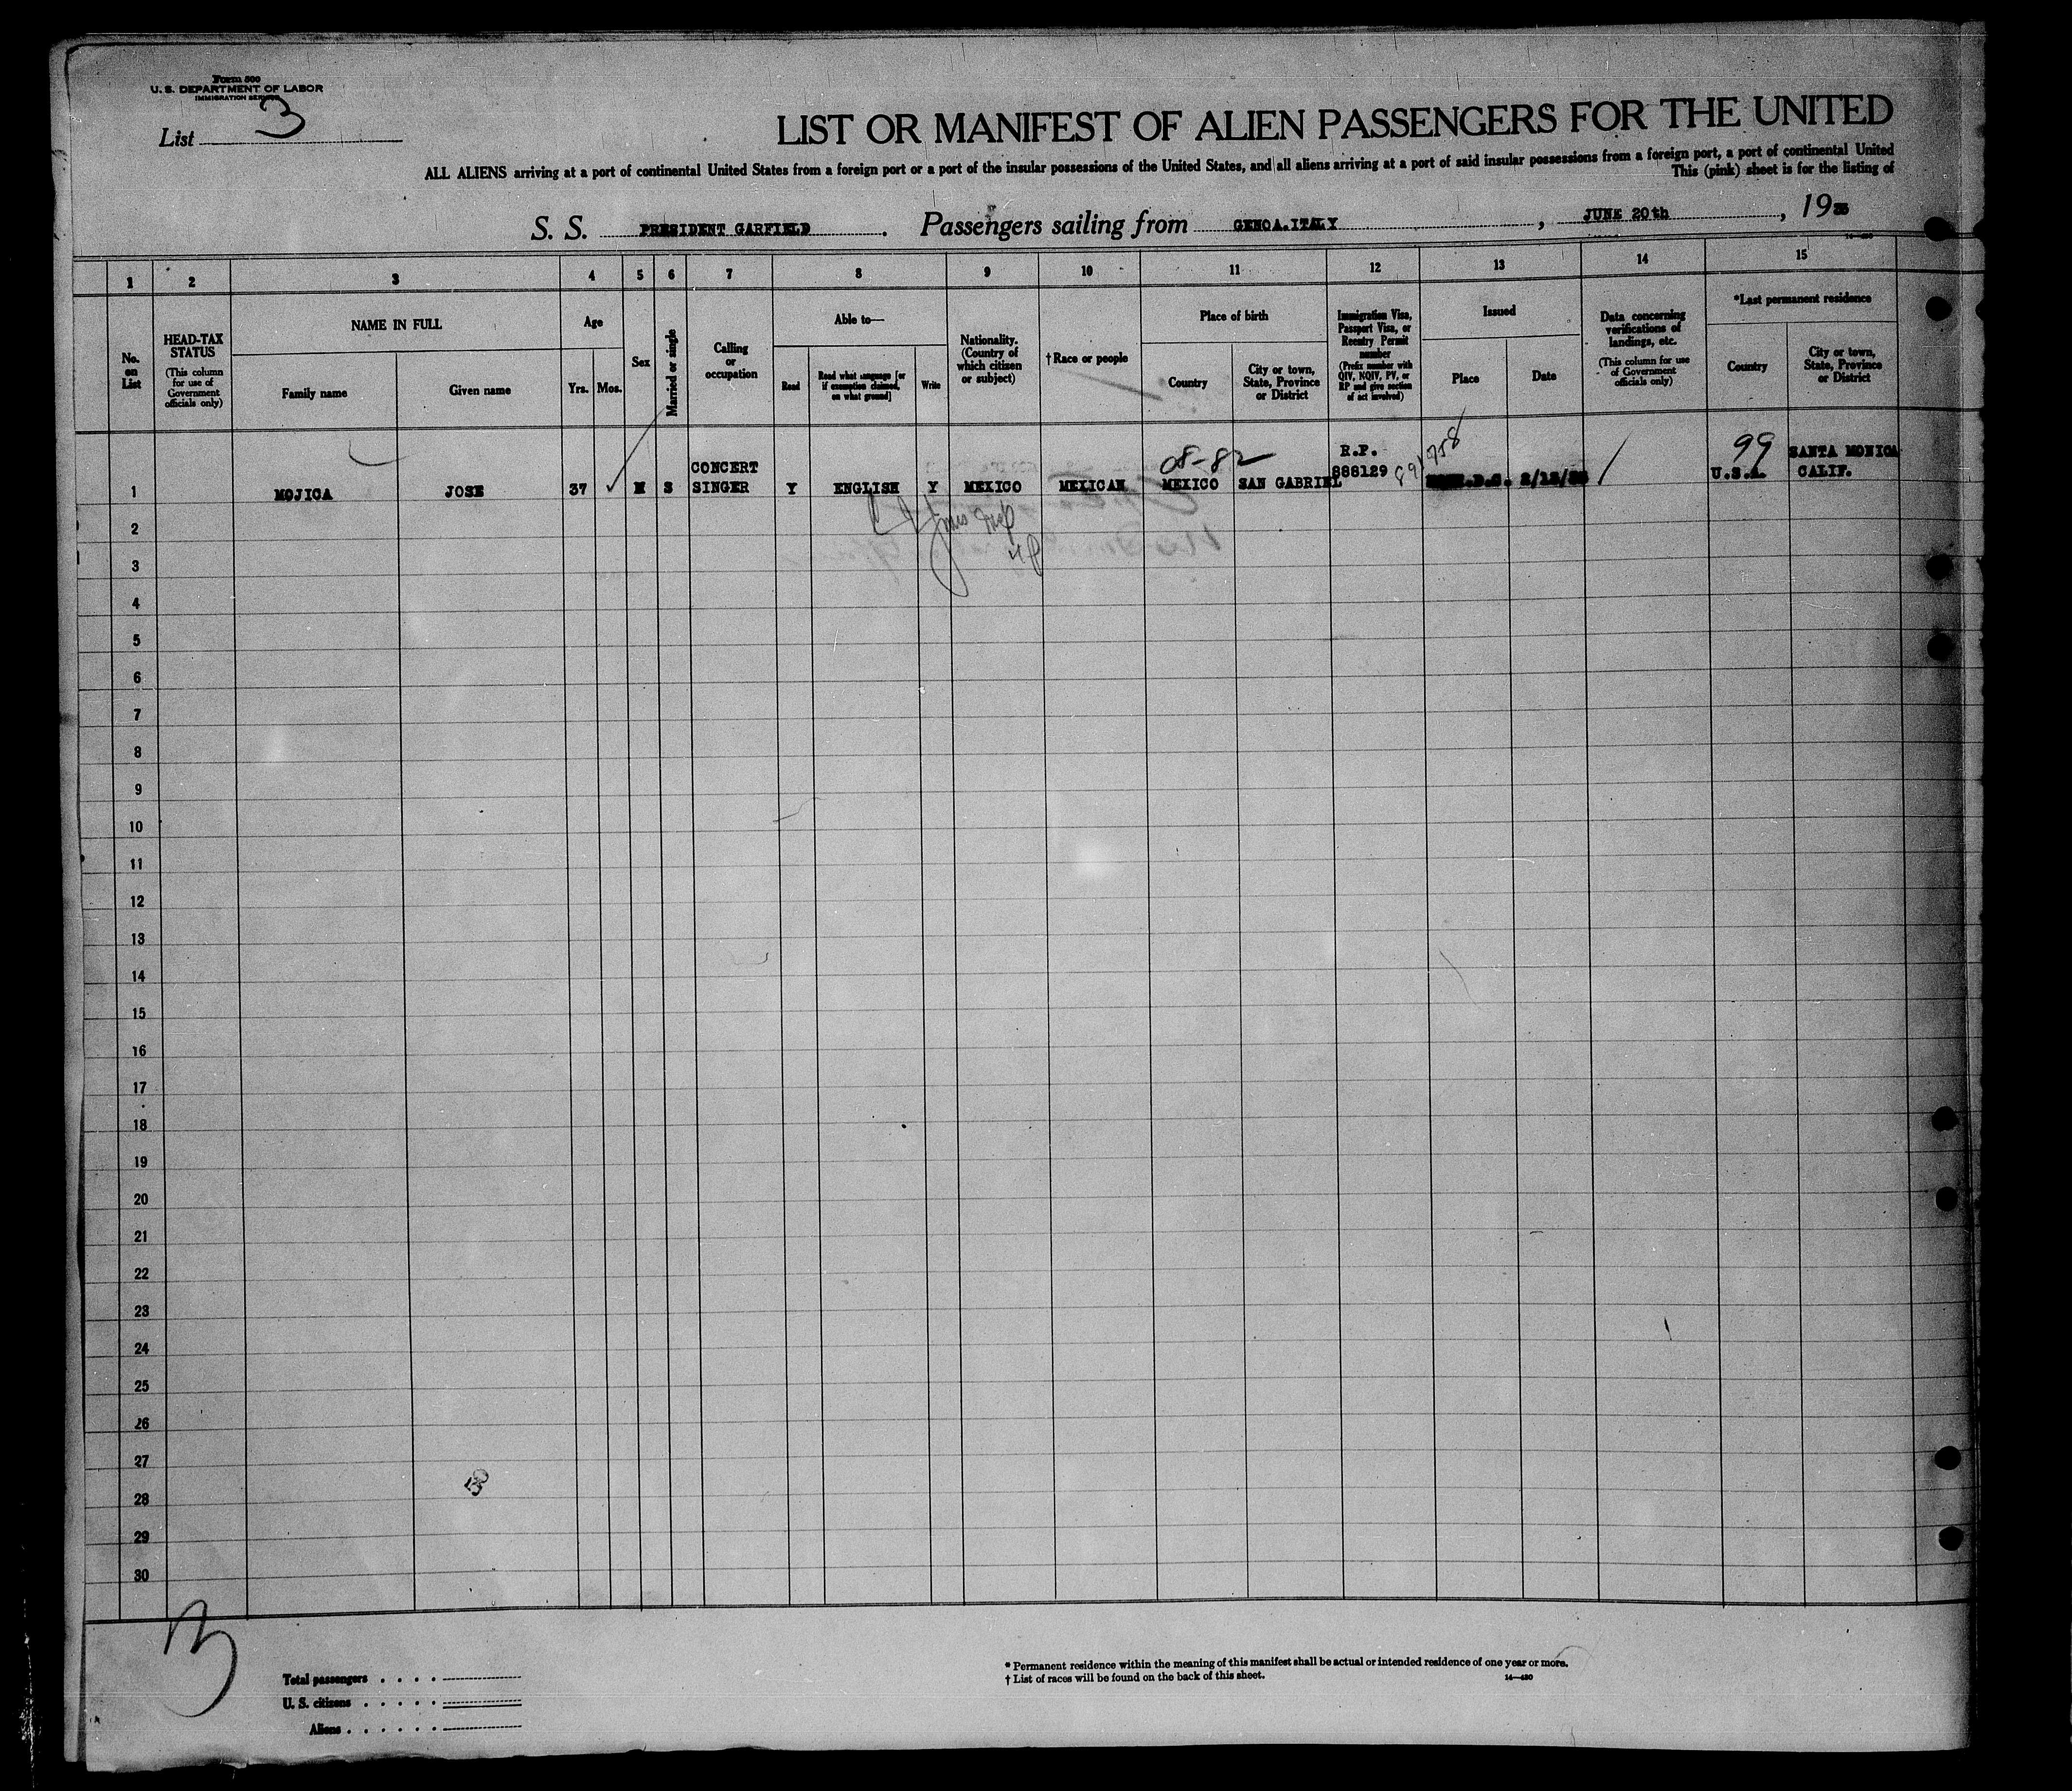 Form 500
U. S. DEPARTMENT OF LABOR
IMMIGRATION SERVICE
List 3
LIST OR MANIFEST OF ALIEN PASSENGERS FOR THE UNITED
ALL ALIENS arriving at a port of continental United States from a foreign port or a part of the insular possessions of the United States, and all aliens arriving at a port of said insular possessions from a foreign port, a port of continental United
This (pink) sheet is for the listing of
S. S. PRESIDENT GARFIELD . Passengers sailing from GENOA.ITALY , JUNE 20th , 19
1 2 3 4 5 6 7 8 9 10 11 12 13 14 15
No. on List
HEAD-TAX STATUS
(This column for use of Government officials only)
NAME IN FULL
Family name
Given name
Age
Yrs. Mos.
Sex
Married or single
Calling or occupation
Able to—
Read
Read what language [or if exemption claimed, on what ground]
Write
Nationality. (Country of which citizen or subject)
†Race or people
Place of birth
Country
City or town, State, Province or District
Immigration Visa, Passport Visa, or Reentry Permit number
(Prefix number with QIV, NQIV, PV, or RP and give section of act involved)
Issued
Place
Date
Data concerning verifications of landings, etc.
(This column for use of Government officials only)
*Last permanent residence
Country
City or town, State, Province or District
08-82 R.P. 891758 99 SANTA MONICA
CONCERT 888129 U.S.A. CALIF.
1 MOJICA JOSE 37 M S SINGER Y ENGLISH Y MEXICO MEXICAN MEXICO SAN GABRIEL .D.C. 2/12/
2
3
4
5
6
7
8
9
10
11
12
13
14
15
16
17
18
19
20
21
22
23
24
25
26
27
28
29
30
Total passengers
U. S. citizens
Aliens
* Permanent residence within the meaning of this manifest shall be actual or intended residence of one year or more.
† List of races will be found on the back of this sheet.
14—480